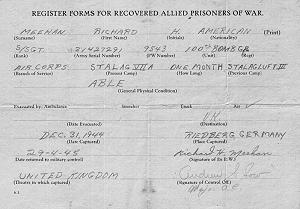 REGISTER FORMS FOR RECOVERED ALLIED PRISONERS OF WAR.
MEEHAN RICHARD H. AMERICAN (Print)
(Surname) (First Name) (Initials) (Nationality)
S/SGT. 31427221 9543 100th BOMB GR
(Rank) (Army Serial Number) (PW Number) (Unit)
AIR CORPS STALAG VII A ONE MONTH STALAG LUFT III
(Branch of Service) (Present Camp) (How Long) (Previous Camp)
ABLE
(General Physical Condition)
Evacuated by: Ambulance Stretcher Truck Air ✓
U.K.
(Date Evacuated) (Destination)
DEC. 31, 1944 RIEDBERG GERMANY
(Date Captured) (Place Captured)
29-4-45 Richard H. Meehan
(Date returned to military control) (Signature of Ex P.W.)
UNITED KINGDOM
(Theatre in which captured) (Signature of Control Off.)
Major